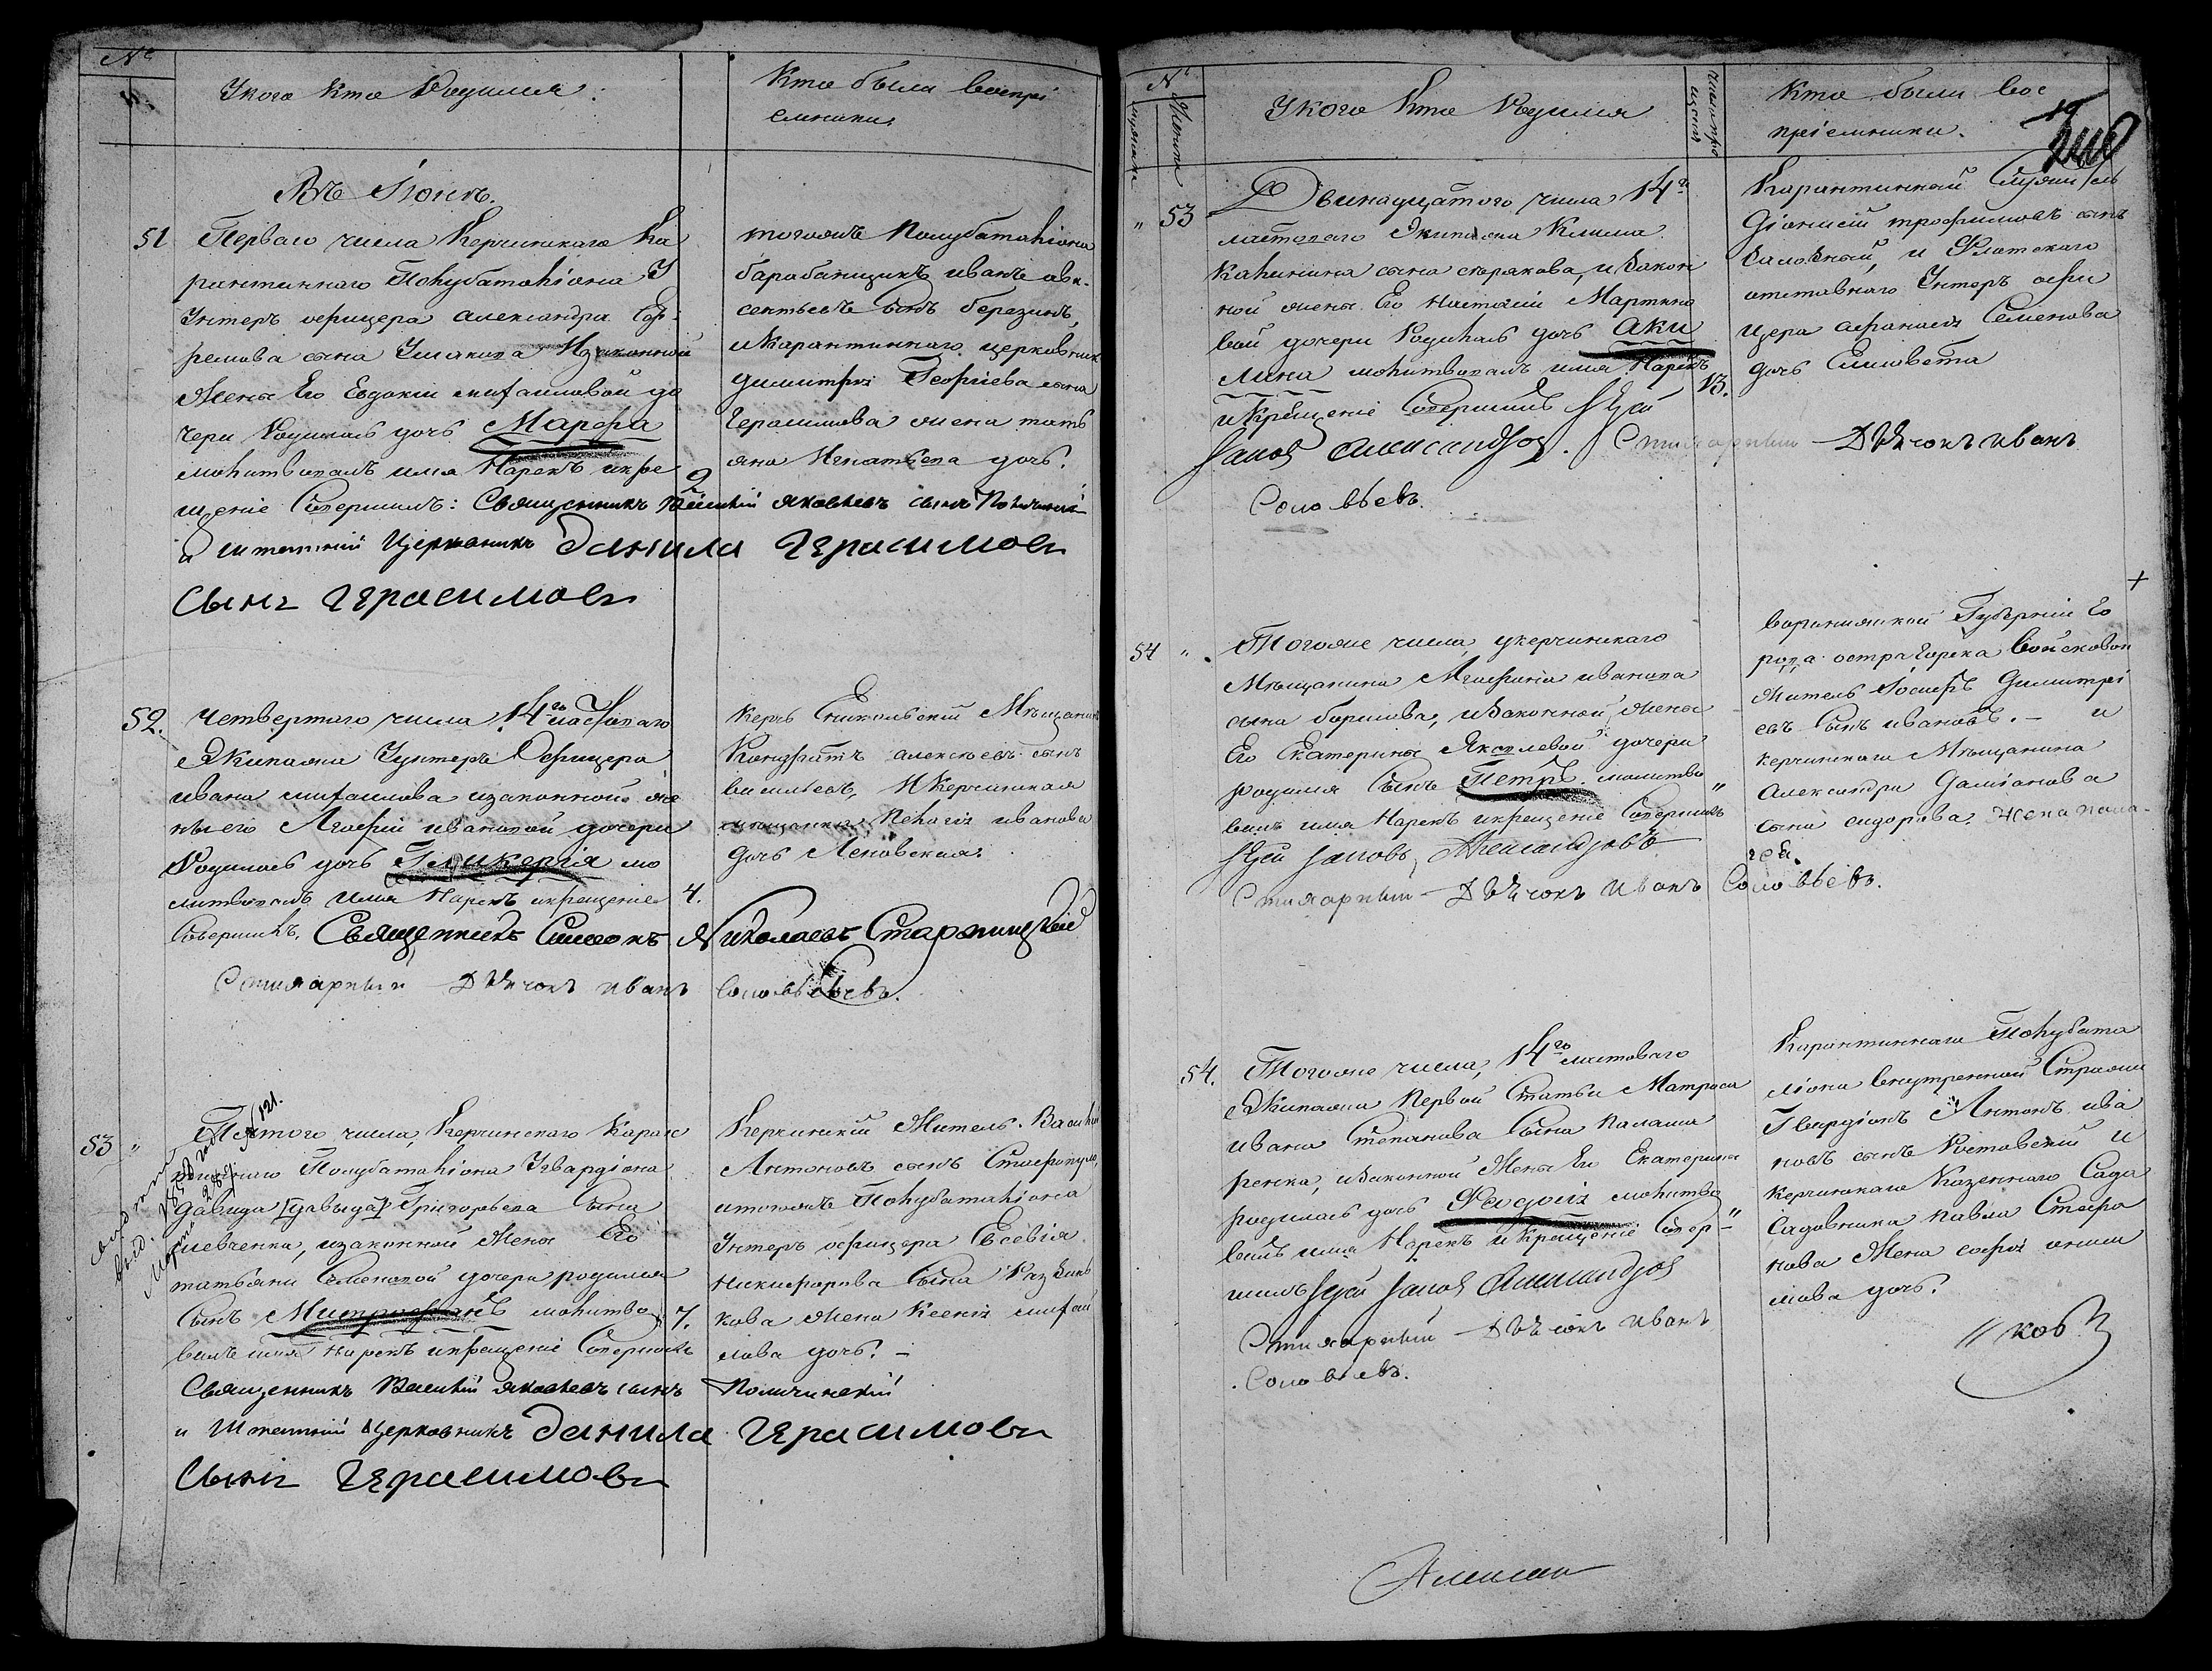 №
У кого кто родился:
Кто были воспрі
емники.
Въ Іюнѣ.
51
Перваго числа Керчинскаго Ка
рантиннаго Полубаталіона У
Унтеръ офицера александра
сына Изаконной
Жены Его Евдокіи михаиловой до
чери Родилась дочь Марѳа
молитвовалъ имя Нарекъ икре
щеніе Совершилъ: Священникъ Василій яковлевъ сынъ
и штатный Церковникъ Данила Герасимовъ
Сынъ Герасимовъ
тогожъ Полубаталіона
барабанщикъ иванъ авк-
сентьевъ сынъ березинъ,
и Карантиннаго церковник
димитрія Георгіева сына
Герасимова жена тать
яна Игнатьева дочь.
2
52.
четвертаго числа 14го ластоваго
Экипажа Унтеръ Офицера
ивана михаилова изаконной же
ны его Агафіи ивановой дочери
Родилась дочь Гликерія мо
литвовалъ имя Нарекъ икрещеніе
Совершилъ. Священникъ Симеонъ Николаевъ Старницкій
Стихарный Дьячокъ иванъ Соловьевъ.
4.
Керчь Еникольскій Мѣщанинъ
Кондратъ алексѣевъ сынъ
васильевъ, И Керчинская
мѣщанка Пелагія иванова
дочь Леновская.
53 "
Пятого числа, Керчинского Каран
тиннаго Полубаталіона Угвардіона
давида [давыда] Григорьева Сына
шевченка, изаконной Жены Его
татьяни Семеновой дочери родился
Сынъ Митрофанъ молитво
валъ имя нарекъ икрещеніе Совершилъ
Священникъ Василій яковлевъ сынъ Поличинскій
и Штатный Церковникъ Данила Герасимовъ
Сынъ Герасимовъ
7.
№ 121.
Керчинскій Житель. Василій
Антоновъ сынъ Стафопуло,
итогожъ Полубаталіона
Унтеръ офицера Евсевія
никифорова Сына
кова Жена Ксенія михаи
лова дочь. –
№
У кого Кто Родился
Кто были вос
пріемники.
19
" 53
Двенадцатого числа 14го
ластоваго Экипажа Клима
Калинина сына сырякова, изакон
ной жены Его Настасіи Мартино
вой дочери Родилась дочь Аки
лина молитвовалъ имя Нарекъ
икрещеніе Совершилъ Іерей
Іаковъ Александровъ. Стихарный Дьячокъ иванъ
Соловьевъ.
13.
Карантинный Служитель
Діонисій трофимовъ сынъ
и Флотскаго
отставнаго Унтеръ офи
цера афанасія Семенова
дочь Елисавета
54 "
Тогоже числа, укерчинскаго
Мѣщанина Агафона иванова
сына борисова, изаконной жены
Его Екатерины Яковлевой дочери
родился Сынъ Петръ. молитво
валъ имя Нарекъ икрещеніе Совершилъ
Іерей Іаковъ Александровъ
Стихарный Дьячокъ Иванъ Соловьевъ.
+
воронижской Губерніи Го
рода острагорска Войсковой
Житель Іосифъ Димитрі
евъ Сынъ ивановъ. – и
керчинскаго Мѣщанина
Александра Даміанова
сына сидорова Жена пела-
гея.
54.
Тогоже числа, 14го ластоваго
Экипажа Первой Статьи Матроса
ивана Степанова Сына палама
ренка, изаконной Жены Его Екатерины
родилась дочь Феодосія молитво
валъ имя Нарекъ икрещеніе Совер-
шилъ Іерей Іаковъ Александровъ
Стихарный Дьячокъ иванъ
Соловьевъ.
Карантиннаго Полубата
ліона внутренной Стражи
Гвардіонъ Антонъ ива
новъ сынъ Ростовскій и
керчинскаго Казеннаго Сада
Садовника павла Стефа
нова Жена софія
мова дочь.
ковъ